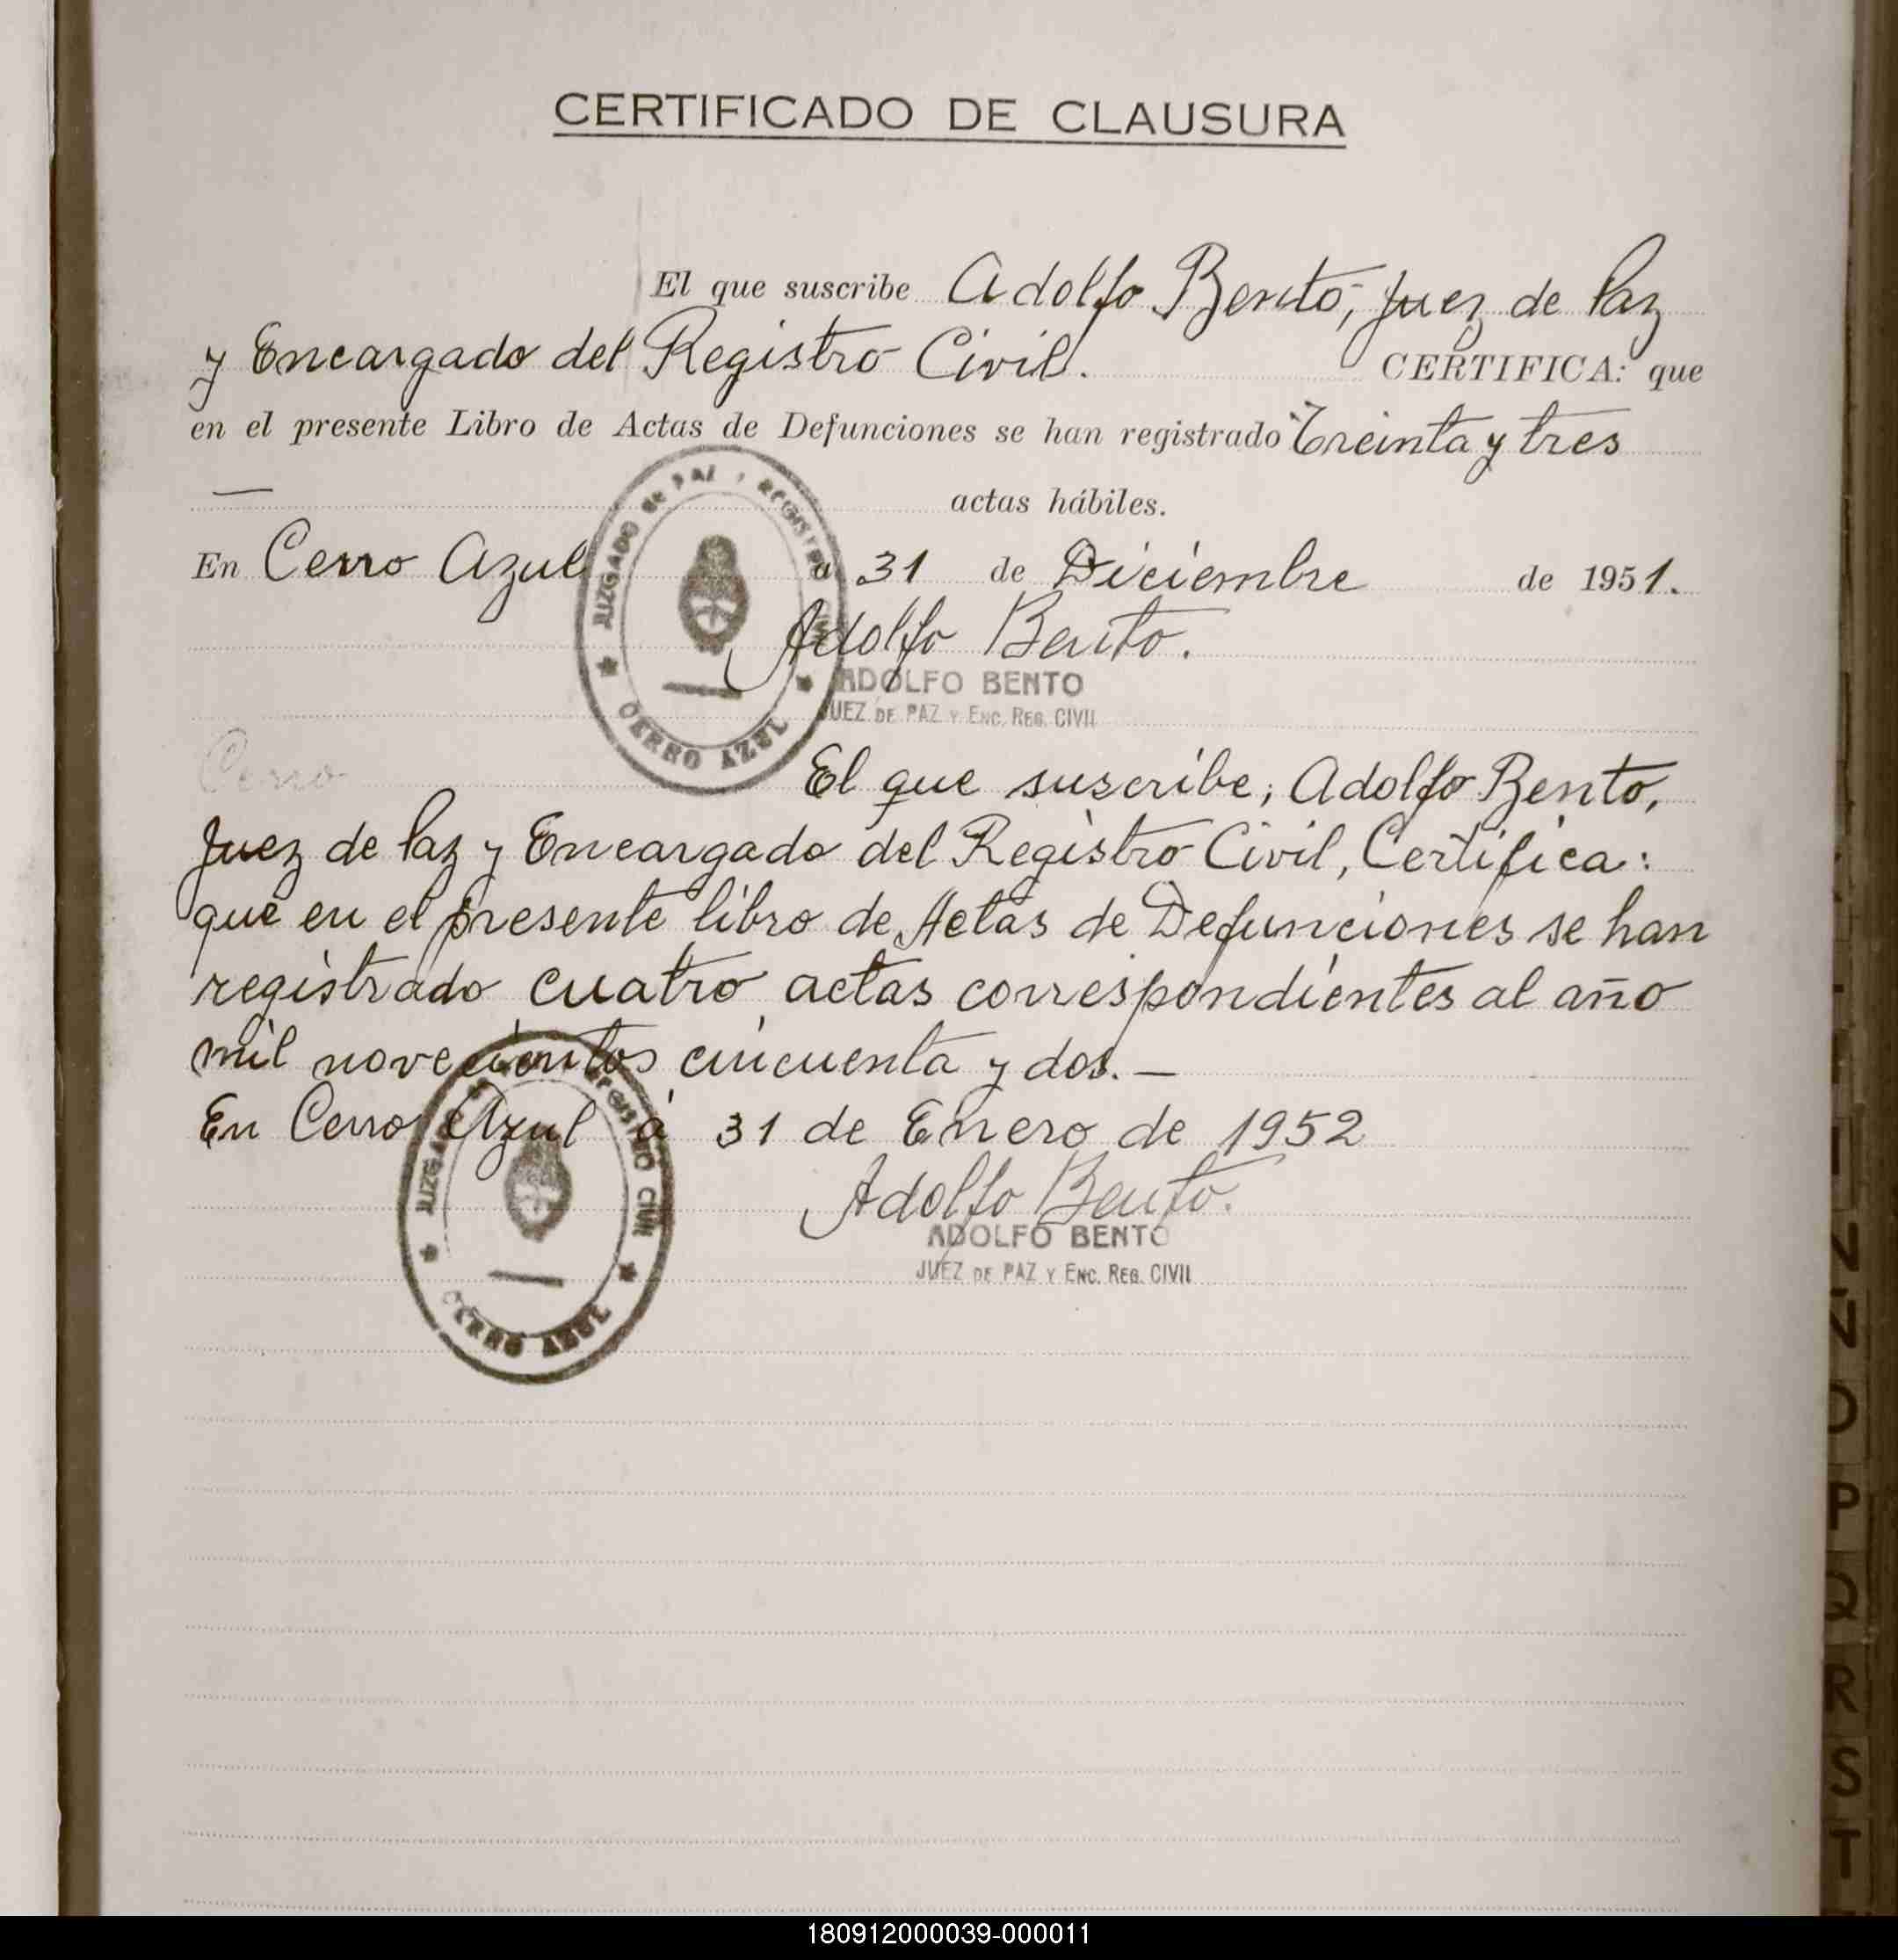 CERTIFICADO DE CLAUSURA
El que suscribe Adolfo Bento, Juez de Paz
y Encargado del Registro Civil. CERTIFICA: que
en el presente Libro de Actas de Defunciones se han registrado Treinta y tres
— actas hábiles.
En Cerro Azul a 31 de Diciembre de 1951.
JUZGADO de PAZ Y REGISTRO CIVIL
CERRO AZUL
Adolfo Bento.
ADOLFO BENTO
JUEZ DE PAZ Y ENC. REG. CIVIL
Cerro
El que suscribe, Adolfo Bento,
Juez de Paz y Encargado del Registro Civil, Certifica:
que en el presente libro de Actas de Defunciones se han
registrado cuatro actas correspondientes al año
mil novecientos cincuenta y dos. —
En Cerro Azul á 31 de Enero de 1952
JUZGADO REGISTRO CIVIL
CERRO AZUL
Adolfo Bento.
ADOLFO BENTO
JUEZ DE PAZ Y ENC. REG. CIVIL
N
Ñ
O
P
Q
R
S
T
180912000039-000011